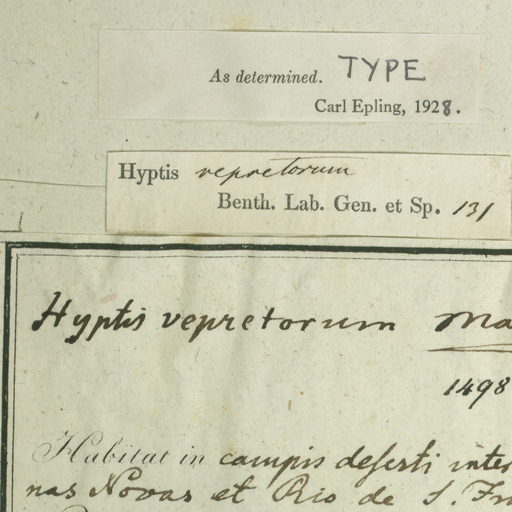 As determined. TYPE
Carl Epling, 1928.
Hyptis vepretorum
Benth. Lab. Gen. et Sp. 131
Hyptis vepretorum Ma
1498
Habitat in campis deserti inter
nas Novas et Rio de S. Fr